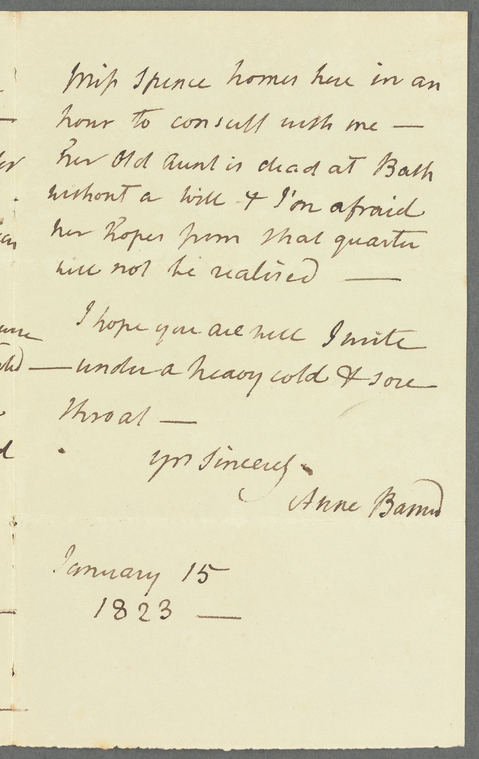 Miss Spence comes here in an
hour to consult with me —
her Old Aunt is dead at Bath
without a Will & I'm afraid
her hopes from that quarter
will not be realised —
I hope you are well I write
— under a heavy cold & sore
throat —
yrs Sincerely
Anne Barnard
January 15
1823 —